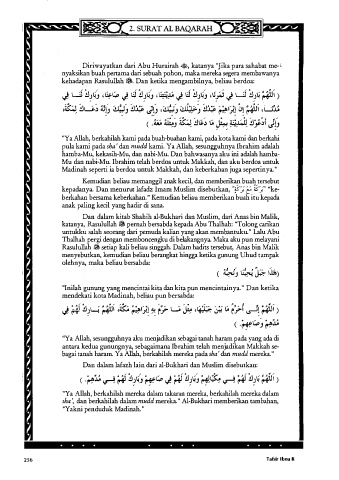 2. SURAT AL BAQARAH
Diriwayatkan dari Abu Hurairah ﷺ, katanya "Jika para sahabat me-
nyaksikan buah pertama dari sebuah pohon, maka mereka segera membawanya
kehadapan Rasulullah ﷺ. Dan ketika mengambilnya, beliau berdoa:
( اَللَّهُمَّ بَارِكْ لَنَا فِي ثَمَرِنَا، وَبَارِكْ لَنَا فِي مَدِيْنَتِنَا، وَبَارِكْ لَنَا فِي صَاعِنَا، وَبَارِكْ لَنَا فِي
مُدِّنَا، اَللَّهُمَّ إِنَّ إِبْرَاهِيْمَ عَبْدُكَ وَخَلِيْلُكَ وَنَبِيُّكَ، وَإِنِّي عَبْدُكَ وَنَبِيُّكَ وَإِنَّهُ دَعَاكَ لِمَكَّةَ،
وَإِنِّي أَدْعُوْكَ لِلْمَدِيْنَةِ بِمِثْلِ مَا دَعَاكَ لِمَكَّةَ وَمِثْلَهُ مَعَهُ. )
"Ya Allah, berkahilah kami pada buah-buahan kami, pada kota kami dan berkahi
pula kami pada sha' dan mudd kami. Ya Allah, sesungguhnya Ibrahim adalah
hamba-Mu, kekasih-Mu, dan nabi-Mu. Dan bahwasanya aku ini adalah hamba-
Mu dan nabi-Mu. Ibrahim telah berdoa untuk Makkah, dan aku berdoa untuk
Madinah seperti ia berdoa untuk Makkah, dan keberkahan juga sepertinya."
Kemudian beliau memanggil anak kecil, dan memberikan buah tersebut
kepadanya. Dan menurut lafadz Imam Muslim disebutkan, "بَرَكَةً مَعَ بَرَكَةٍ" "ke-
berkahan bersama keberkahan." Kemudian beliau memberikan buah itu kepada
anak paling kecil yang hadir di sana.
Dan dalam kitab Shahih al-Bukhari dan Muslim, dari Anas bin Malik,
katanya, Rasulullah ﷺ pernah bersabda kepada Abu Thalhah: "Tolong carikan
untukku salah seorang dari pemuda kalian yang akan membantuku." Lalu Abu
Thalhah pergi dengan memboncengku di belakangnya. Maka aku pun melayani
Rasulullah ﷺ setiap kali beliau singgah. Dalam hadits tersebut, Anas bin Malik
menyebutkan, kemudian beliau berangkat hingga ketika gunung Uhud tampak
olehnya, maka beliau bersabda:
( هَذَا جَبَلٌ يُحِبُّنَا وَنُحِبُّهُ )
"Inilah gunung yang mencintai kita dan kita pun mencintainya." Dan ketika
mendekati kota Madinah, beliau pun bersabda:
( اَللَّهُمَّ إِنِّي أُحَرِّمُ مَا بَيْنَ جَبَلَيْهَا، مِثْلَ مَا حَرَّمَ بِهِ إِبْرَاهِيْمُ مَكَّةَ، اَللَّهُمَّ بَارِكْ لَهُمْ فِي
مُدِّهِمْ وَصَاعِهِمْ. )
"Ya Allah, sesungguhnya aku menjadikan sebagai tanah haram pada yang ada di
antara kedua gunungnya, sebagaimana Ibrahim telah menjadikan Makkah se-
bagai tanah haram. Ya Allah, berkahilah mereka pada sha' dan mudd mereka."
Dan dalam lafazh lain dari al-Bukhari dan Muslim disebutkan:
( اَللَّهُمَّ بَارِكْ لَهُمْ فِي مِكْيَالِهِمْ وَبَارِكْ لَهُمْ فِي صَاعِهِمْ وَبَارِكْ لَهُمْ فِي مُدِّهِمْ. )
"Ya Allah, berkahilah mereka dalam takaran mereka, berkahilah mereka dalam
sha', dan berkahilah dalam mudd mereka." Al-Bukhari memberikan tambahan,
"Yakni penduduk Madinah."
236